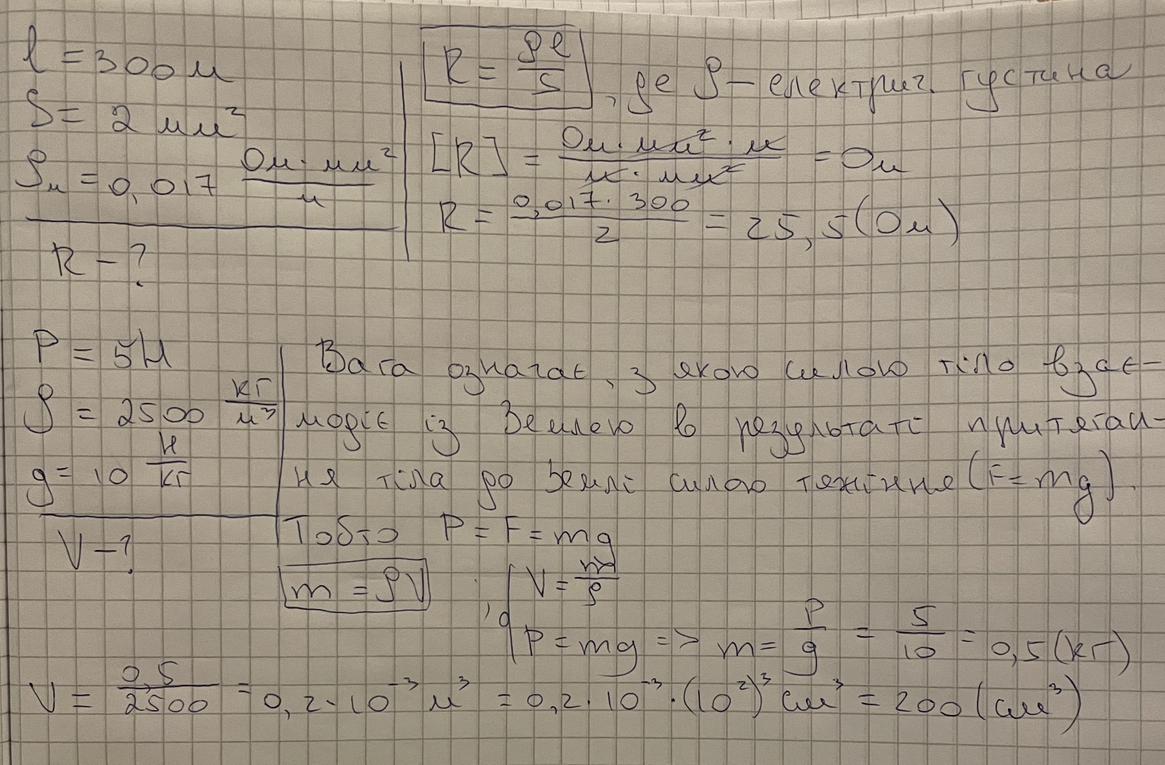 l = 300 м
S = 2 мм²
ρм = 0,017 Ом·мм²/м
R - ?
R = ρl/S, де ρ - електрич. густина
[R] = Ом·мм²·м/м·мм² = Ом
R = 0,017·300/2 = 25,5 (Ом)
P = 5Н
ρ = 2500 кг/м³
g = 10 н/кг
V - ?
Вага означає, з якою силою тіло взає-
модіє із Землею в результаті притяган-
ня тіла до Землі силою тяжіння (F = mg).
Тобто P = F = mg
m = ρV ; V = m/ρ
P = mg => m = P/g = 5/10 = 0,5 (кг)
V = 0,5/2500 = 0,2·10⁻³ м³ = 0,2·10⁻³·(10²)³ см³ = 200 (см³)